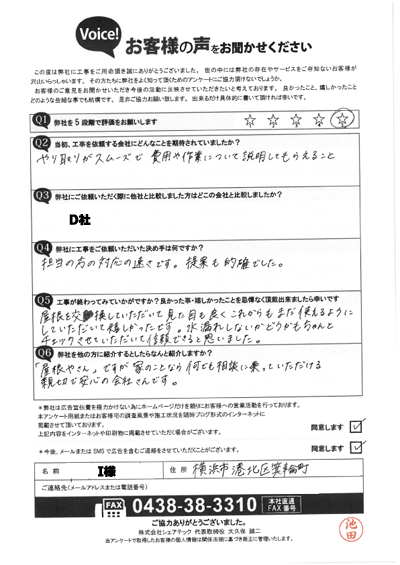 Voice!
お客様の声をお聞かせください
この度は弊社に工事をご用命頂き誠にありがとうございました。世の中には弊社の存在やサービスをご存知ないお客様が
沢山いらっしゃいます。その方たちに弊社をよく知って頂くためのアンケートにご協力頂けないでしょうか。
お客様のご意見をお聞かせいただき今後の活動に反映させていただきたいと考えております。良かったこと、嬉しかったこと
どのような些細な事でも結構です。是非ご協力お願い致します。出来るだけ具体的に書いて頂ければ幸いです。
Q1 弊社を5段階で評価をお願いします ☆ ☆ ☆ ☆ ☆
Q2 当初、工事を依頼する会社にどんなことを期待されていましたか?
やり取りがスムーズで 費用や作業について説明してもらえること
Q3 弊社にご依頼いただく際に他社と比較しました方はどこの会社と比較しましたか?
D社
Q4 弊社に工事をご依頼いただいた決め手は何ですか?
担当の方の対応の速さです。提案も的確でした。
Q5 工事が終わってみていかがですか?良かった事・嬉しかったことを忌憚なく頂戴出来ましたら幸いです
屋根を交換していただいて見た目も良くこれからもまだ使えるように
していただいて嬉しかったです。水漏れしないかどうかもちゃんと
チェックさせていただいて信頼できると思いました。
Q6 弊社を他の方に紹介するとしたらなんと紹介しますか?
「屋根やさん」ですが家のことなら何でも相談に乗っていただける
親切で安心の会社さんです。
*弊社は広告宣伝費を極力かけない為にホームページだけを頼りにお客様への営業活動を行っております。
本アンケート用紙またはお客様宅の調査風景や施工状況を随時ブログ形式のインターネットに
掲載させて頂いております。
上記内容をインターネットや印刷物に掲載させていただく場合がございます。
同意します
*今後、メールまたはSMSで広告を含むご連絡をさせていただくことがございます。
同意します
名前 I様 住所 横浜市港北区箕輪町
ご連絡先(メールアドレスまたは電話番号)
FAX 0438-38-3310 本社直通 FAX番号
ご協力ありがとうございました。
株式会社シェアテック 代表取締役 大久保 誠二
当アンケートで取得したお客様の個人情報は関係法規に基づき厳正に管理いたします。
池田